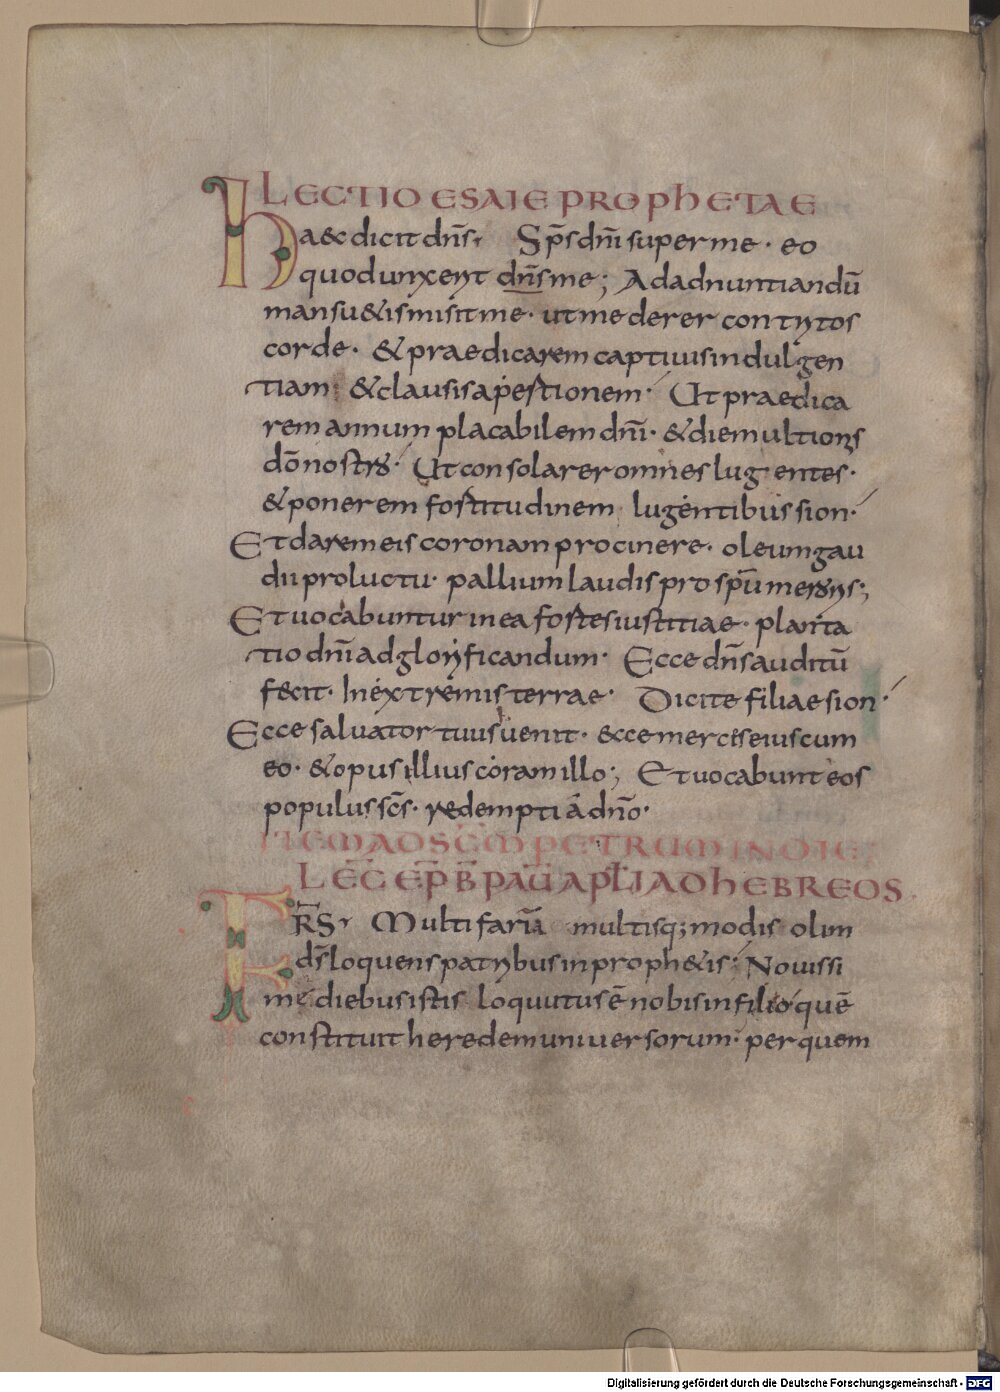 LECTIO ESAIE PROPHETAE
Haec dicit dn̄s. Sp̄s dn̄i super me · eo
quod unxerit dn̄s me; Ad adnuntiandū
mansu&is misit me · ut mederer contritos
corde · & praedicarem captiuis indulgen
tiam · & clausis apertionem · Ut praedica
rem annum placabilem dn̄i · & diem ultionis
dō nostro · Ut consolarer omnes lugentes ·
& ponerem fortitudinem lugentibus sion ·
Et darem eis coronam pro cinere · oleum gau
dii pro luctu · pallium laudis pro sp̄u meroris;
Et uocabuntur in ea fortes iustitiae · planta
tio dn̄i ad glorificandum · Ecce dn̄s auditū
fecit · In extremis terrae · Dicite filiae sion ·
Ecce saluator tuus uenit · ecce merces eius cum
eo · & opus illius coram illo; Et uocabunt eos
populus sc̄s · redempti a dn̄o ·
ITEM AD SC̄M PETRUM IN DIE
LEC̄ EP̄ B̄ PAU̅ APL̄I AD HEBREOS
FR̄S · Multifariā multisq; modis olim
ds̄ loquens patribus in proph&is · Nouissi
me diebus istis loquutus ē nobis in filio quē
constituit heredem uniuersorum · per quem
Digitalisierung gefördert durch die Deutsche Forschungsgemeinschaft - DFG